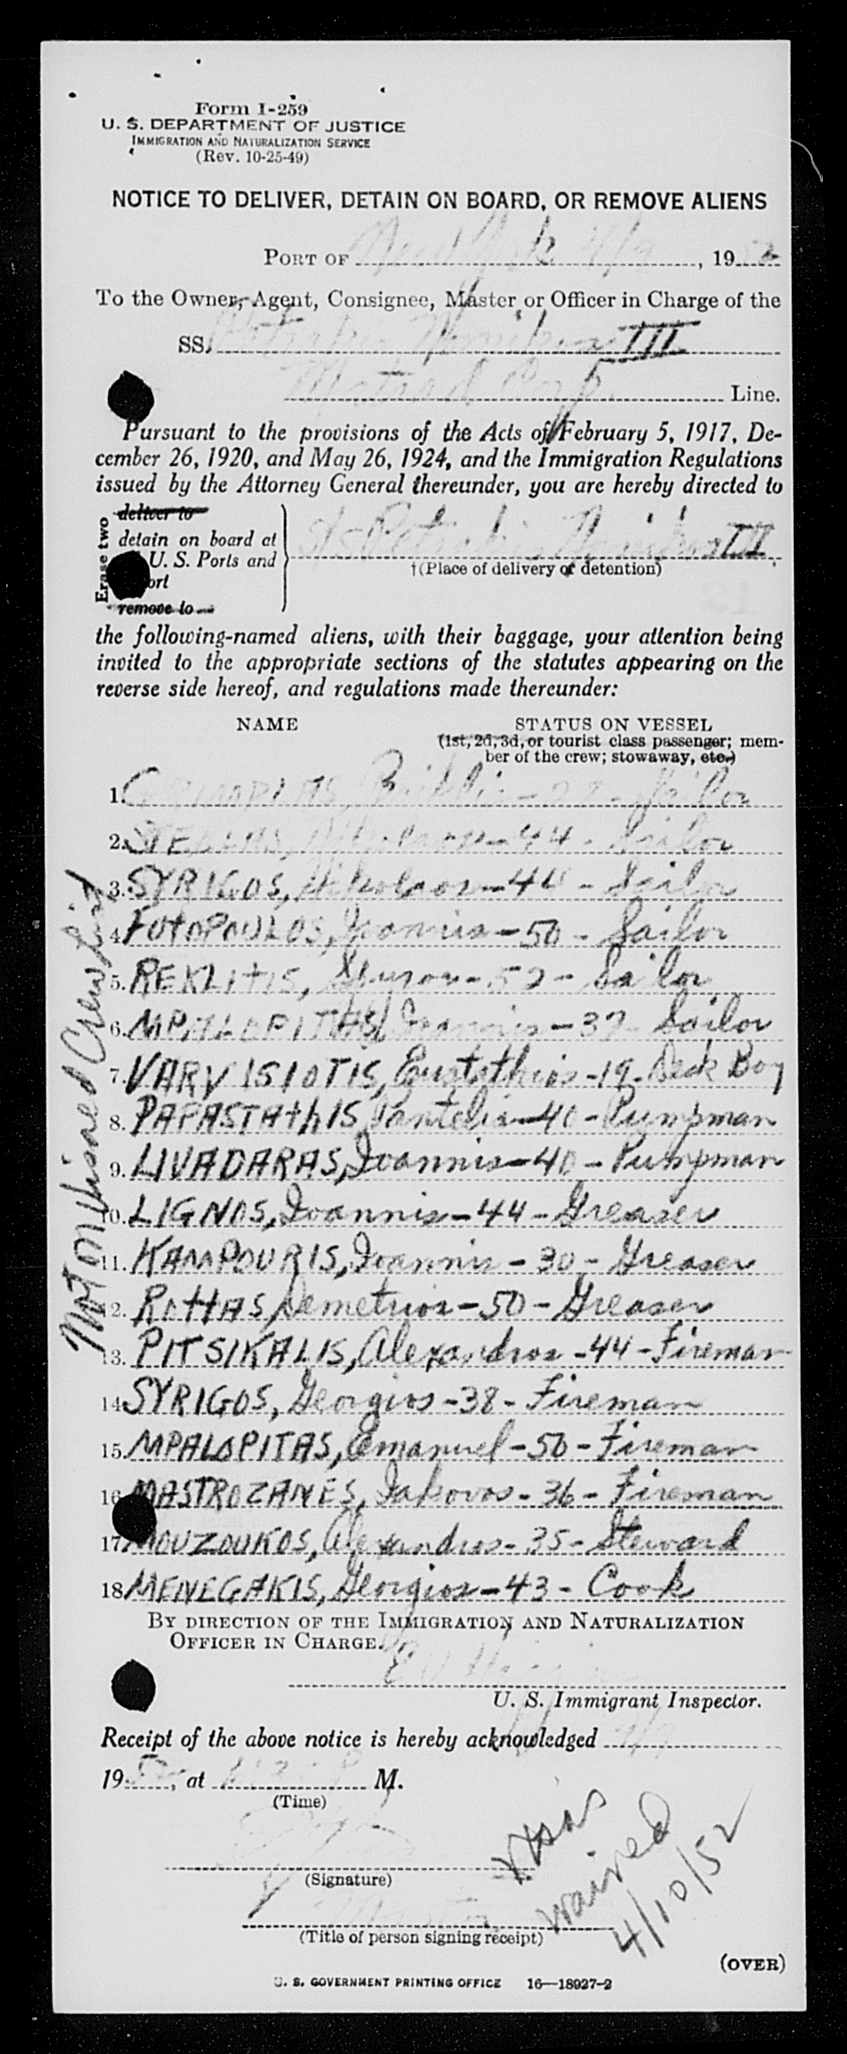 Form I-259
U. S. DEPARTMENT OF JUSTICE
IMMIGRATION AND NATURALIZATION SERVICE
(Rev. 10-25-49)
NOTICE TO DELIVER, DETAIN ON BOARD, OR REMOVE ALIENS
PORT OF New York 4/9, 1952
To the Owner, Agent, Consignee, Master or Officer in Charge of the
SS. III
Corp. Line.
Pursuant to the provisions of the Acts of February 5, 1917, De-
cember 26, 1920, and May 26, 1924, and the Immigration Regulations
issued by the Attorney General thereunder, you are hereby directed to
Erase two
deliver to
detain on board at
U. S. Ports and
remove to
III
†(Place of delivery or detention)
the following-named aliens, with their baggage, your attention being
invited to the appropriate sections of the statutes appearing on the
reverse side hereof, and regulations made thereunder:
NAME STATUS ON VESSEL
(1st, 2d, 3d, or tourist class passenger; mem-
ber of the crew; stowaway, etc.)
Not on Visaed Crew List
1. Sailor
2. 44 - Sailor
3. SYRIGOS, Nikolaos - 44 - Sailor
4. FOTOPOULOS, Ioannis - 50 - Sailor
5. REKLITIS, - Sailor
6. MPALOPITAS, Ioannis - 37 - Sailor
7. VARVISIOTIS, Eustathios - 19 - Deck Boy
8. PAPASTATHIS, Pantelis - 40 - Pumpman
9. LIVADARAS, Ioannis - 40 - Pumpman
10. LIGNOS, Ioannis - 44 - Greaser
11. KAMPOURIS, Ioannis - 30 - Greaser
12. ROTTAS, Demetrios - 50 - Greaser
13. PITSIKALIS, Alexandros - 44 - Fireman
14. SYRIGOS, Georgios - 38 - Fireman
15. MPALOPITAS, Emanuel - 50 - Fireman
16. MASTROZANES, Iakovos - 36 - Fireman
17. MOUZOUKOS, Alexandros - 35 - Steward
18. MENEGAKIS, Georgios - 43 - Cook
BY DIRECTION OF THE IMMIGRATION AND NATURALIZATION
OFFICER IN CHARGE.
U. S. Immigrant Inspector.
Receipt of the above notice is hereby acknowledged
1952, at M.
(Time)
(Signature)
Master
(Title of person signing receipt)
Visas
waived
4/10/52
(OVER)
U. S. GOVERNMENT PRINTING OFFICE 16—18927-2